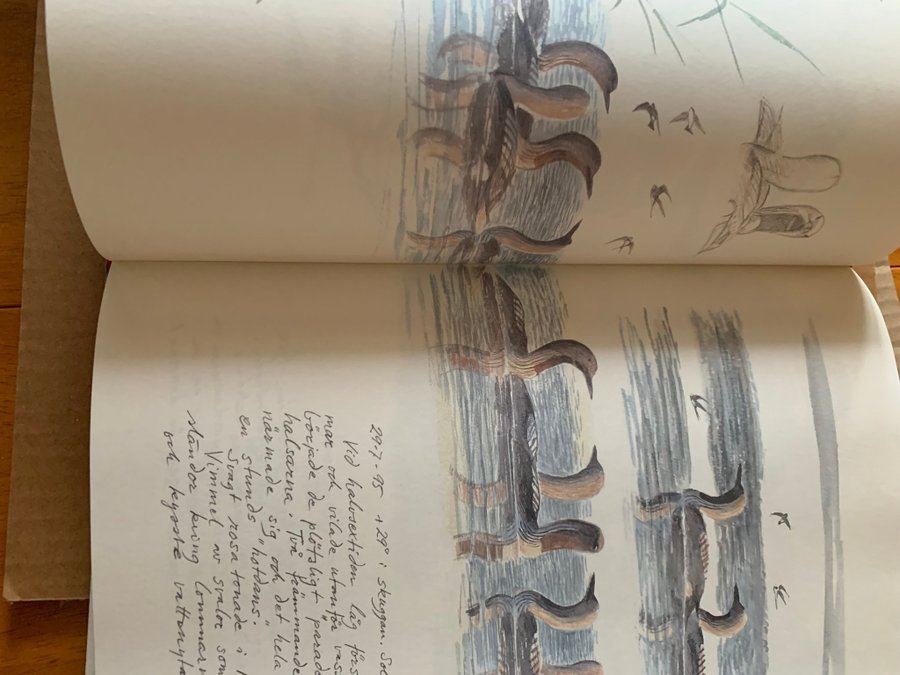 29.7-95 +29° i skuggan. Sol
Vid halvsextiden låg förs
mar och vilade utanför vass
började de plötsligt "parade
halsarna. Två främmande
närmade sig och det hela
en stunds "hotdans".
Svagt rosa tonade i
Vimmel av svalor som
ständor kring lommarn
och kysste vattenyta